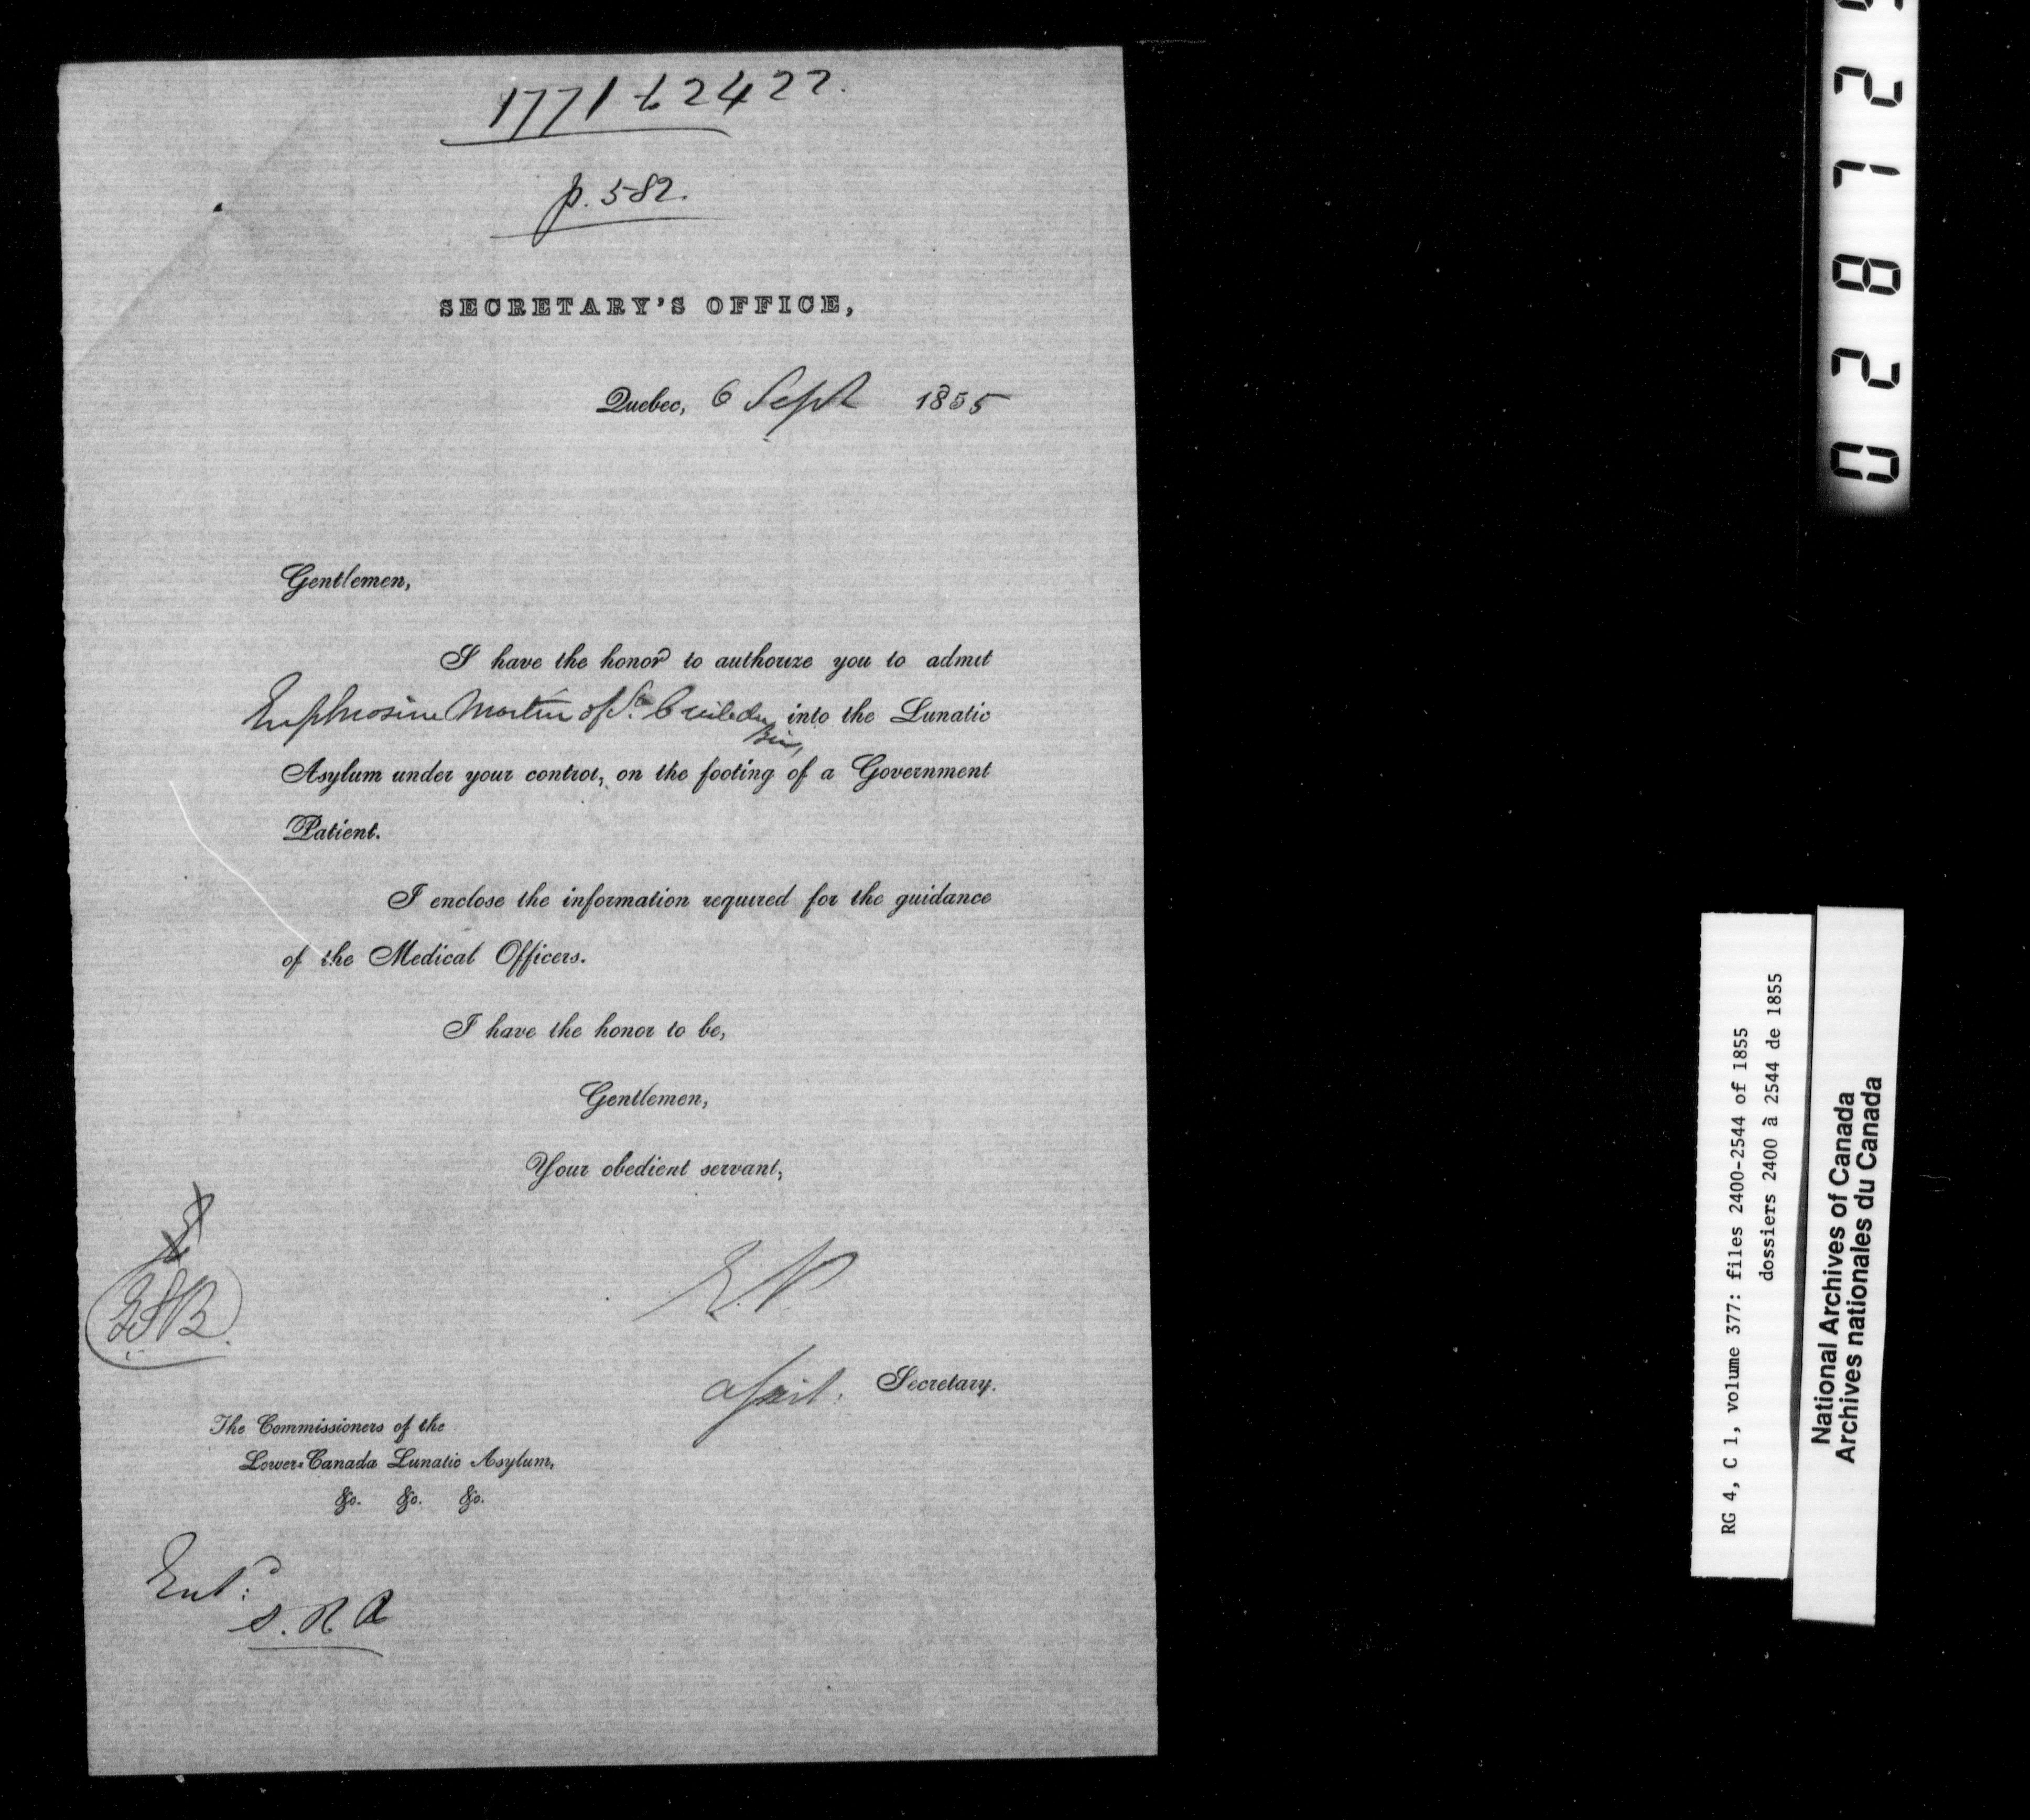 1771 to 2422.
p. 582.
SECRETARY'S OFFICE,
Quebec, 6 Sept 1855
Gentlemen,
I have the honor to authorize you to admit
Euphrosine Martin of Ste. into the Lunatic
Asylum under your control, on the footing of a Government
Patient.
I enclose the information required for the guidance
of the Medical Officers.
I have the honor to be,
Gentlemen,
Your obedient servant,
Secretary.
The Commissioners of the
Lower-Canada Lunatic Asylum,
&c. &c. &c.
Entd:
S. R. R
028725
RG 4, C 1, volume 377: files 2400-2544 of 1855
dossiers 2400 à 2544 de 1855
National Archives of Canada
Archives nationales du Canada